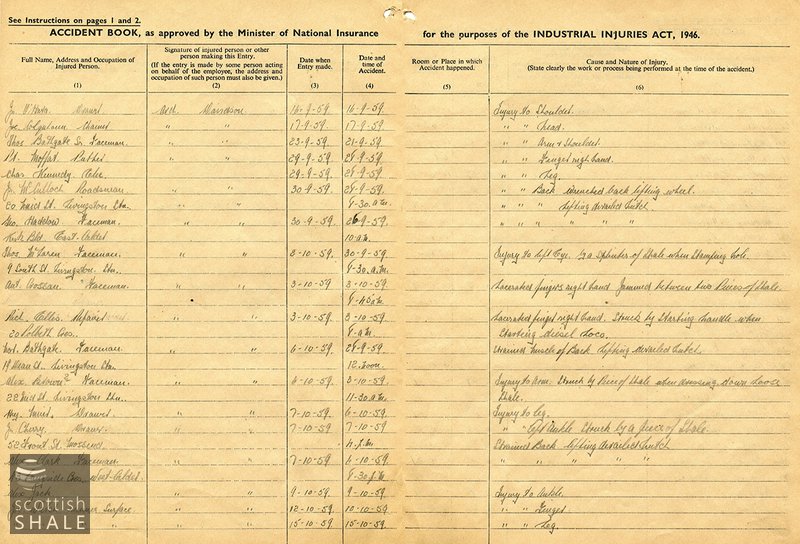 See Instructions on pages 1 and 2.
ACCIDENT BOOK, as approved by the Minister of National Insurance for the purposes of the INDUSTRIAL INJURIES ACT, 1946.
Full Name, Address and Occupation of Injured Person.
(1)
Signature of injured person or other person making this Entry.
(If the entry is made by some person acting on behalf of the employee, the address and occupation of such person must also be given.)
(2)
Date when Entry made.
(3)
Date and time of Accident.
(4)
Room or Place in which Accident happened.
(5)
Cause and Nature of Injury.
(State clearly the work or process being performed at the time of the accident.)
(6)
Jn. O'Hara Davidson 16-9-59 16-9-59 Injury to Shoulder.
Joe " " 17-9-59 17-9-59 " " head.
Thos Bathgate Sr. Faceman " " 23-9-59 21-9-59 " " Arm & Shoulder.
Moffat " " 29-9-59 28-9-59 " " Finger right hand.
Chas Kennedy " " 29-9-59 28-9-59 " " Leg.
Jn. McCulloch Roadsman " " 30-9-59 28-9-59 " " Back Wrenched back lifting wheel.
20 Main St. Livingston Stn. 8-30 a.m. " " " lifting derailed hutch.
Geo. Faceman " " 30-9-59 26-9-59 " " " " " "
Kirk Bld. East Calder 10 a.m.
Thos. McLaren Faceman " " 2-10-59 30-9-59 Injury to left Eye. By a splinter of Shale when Stamping hole.
9 South St. Livingston Stn. 8-30 a.m.
Ant. Crossan Faceman " " 3-10-59 2-10-59 Lacerated fingers right hand Jammed between two Pieces of Shale.
8-45 a.m.
Rich. " " 3-10-59 2-10-59 Lacerated finger right hand. Struck by Starting handle when
20 Polbeth Cres. 8 a.m. Starting diesel Loco.
Bathgate Faceman " " 6-10-59 28-9-59 Strained Muscle of Back lifting derailed hutch.
19 Main St. Livingston Stn. 12 noon
Alex. Faceman " " 6-10-59 2-10-59 Injury to Arm. Struck by Piece of Shale when dressing down loose
22 Mid St. Livingston Stn. 11-30 a.m. Shale.
Hy. Drawer " " 7-10-59 6-10-59 Injury to Leg.
Jn. Cherry Drawer " " 7-10-59 7-10-59 " " left Ankle Struck by a piece of Shale.
52 Front St. Mossend 4 p.m. Strained Back lifting derailed hutch
Clark Faceman " " 7-10-59 6-10-59 " " " " "
Cres. West Calder 8-30 p.m.
Alex Jack " " 9-10-59 9-10-59 Injury to Ankle.
Surface " " 12-10-59 10-10-59 " " Finger
" " 15-10-59 15-10-59 " " Leg.
scottish
SHALE